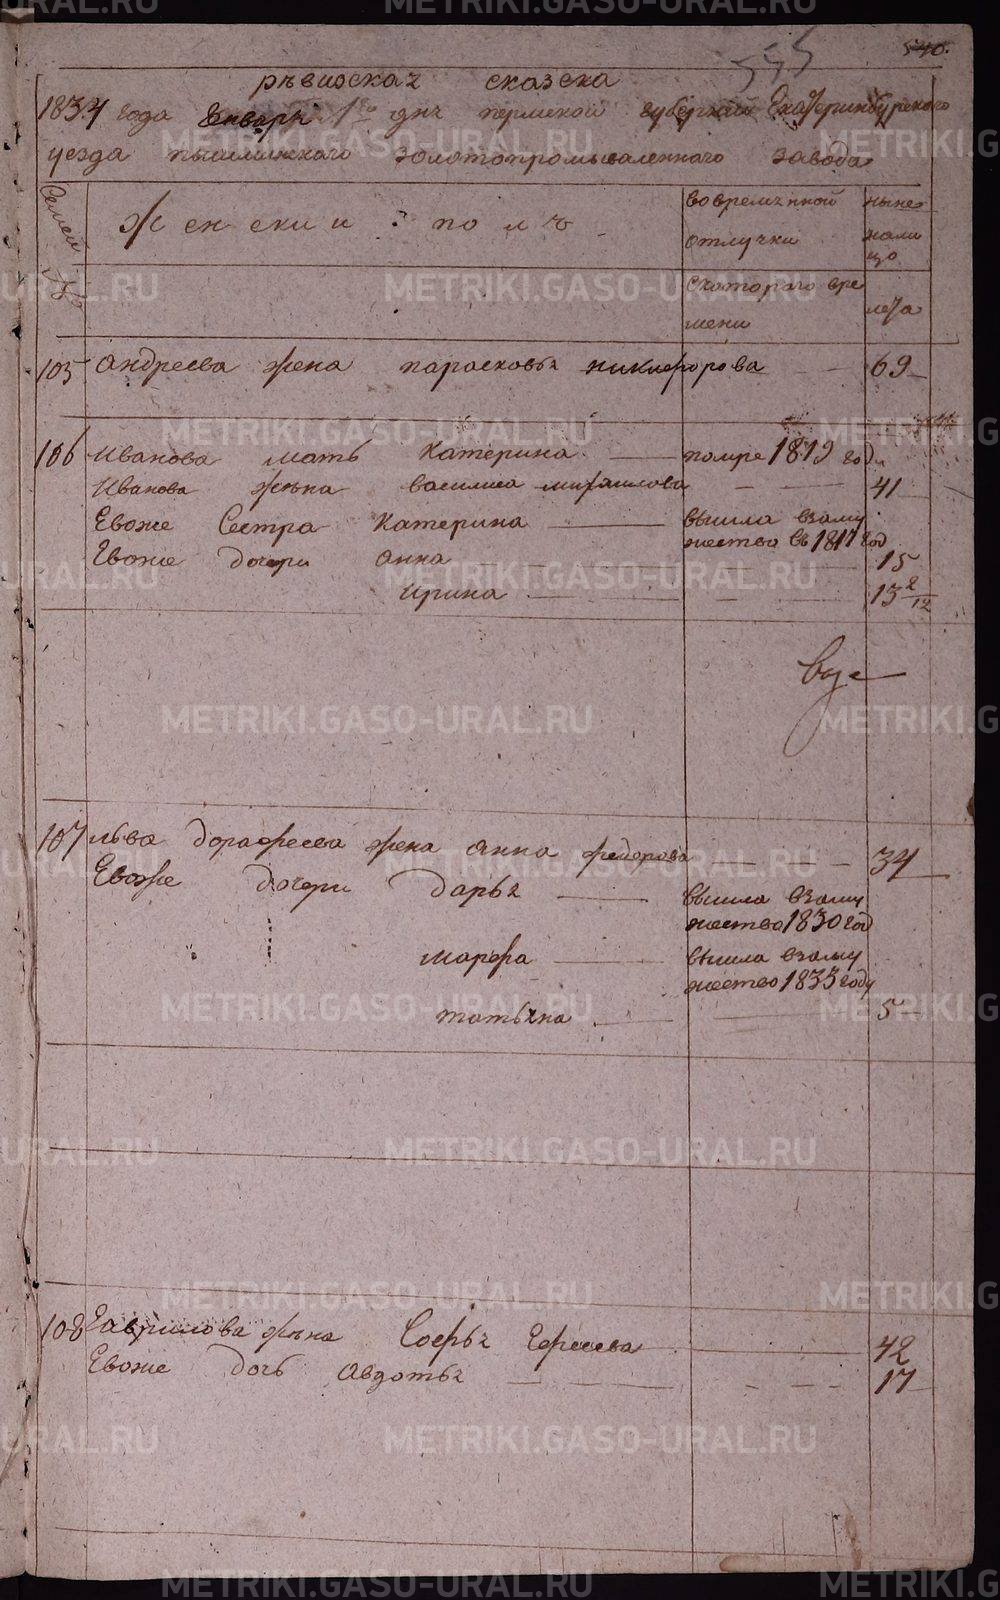 555 540.
ръвизскаꙗ сказска
1834 года Января 1го днꙗ пермской губернии Екатеринбурского
уезда пышминского золотопромываленного завода
Семей №
Женскии полъ
вовременной отлучки
ныне налицо
скоторого времени
лета
105 андреева жена парасковья никифорова 69
106 иванова мать катерина помре 1819 году
иванова жена василиса михайлова 41
Евоже Сестра катерина вышла взамужество въ 1817 год
Евоже дочери анна 15
ирина 13 2/12
107 льва дорофеева жена анна федорова 34
Евоже дочери дарья вышла взамужество 1830 год
марфа вышла взамужество 1833 году
татьяна 5
108 Гаврилова жена Софья 42
Евоже дочь авдотья 17
METRIKI.GASO-URAL.RU